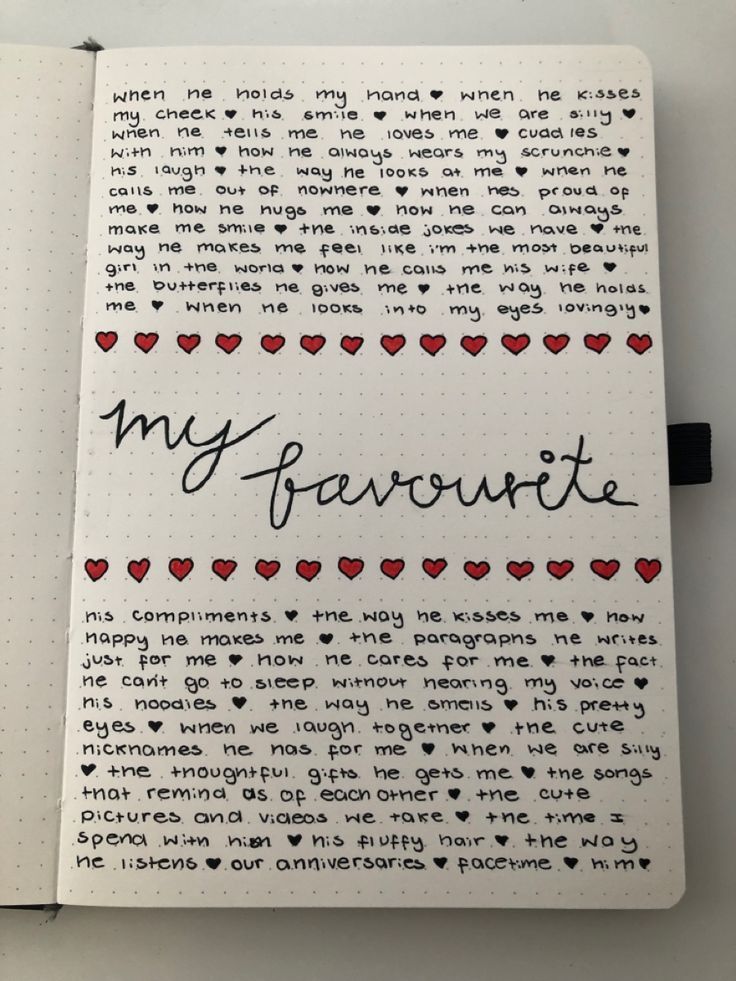 when he holds my hand ♥ when he kisses
my cheek ♥ his smile ♥ when we are silly ♥
when he tells me he loves me ♥ cuddles
with him ♥ how he always wears my scrunchie ♥
his laugh ♥ the way he looks at me ♥ when he
calls me out of nowhere ♥ when hes proud of
me ♥ how he hugs me ♥ how he can always
make me smile ♥ the inside jokes we have ♥ the
way he makes me feel like i'm the most beautiful
girl in the world ♥ how he calls me his wife ♥
the butterflies he gives me ♥ the way he holds
me ♥ when he looks into my eyes lovingly ♥
my
favourite
his compliments ♥ the way he kisses me ♥ how
happy he makes me ♥ the paragraphs he writes
just for me ♥ how he cares for me ♥ the fact
he can't go to sleep without hearing my voice ♥
his hoodies ♥ the way he smells ♥ his pretty
eyes ♥ when we laugh together ♥ the cute
nicknames he has for me ♥ when we are silly
♥ the thoughtful gifts he gets me ♥ the songs
that remind us of each other ♥ the cute
pictures and videos we take ♥ the time I
spend with him ♥ his fluffy hair ♥ the way
he listens ♥ our anniversaries ♥ facetime ♥ him ♥